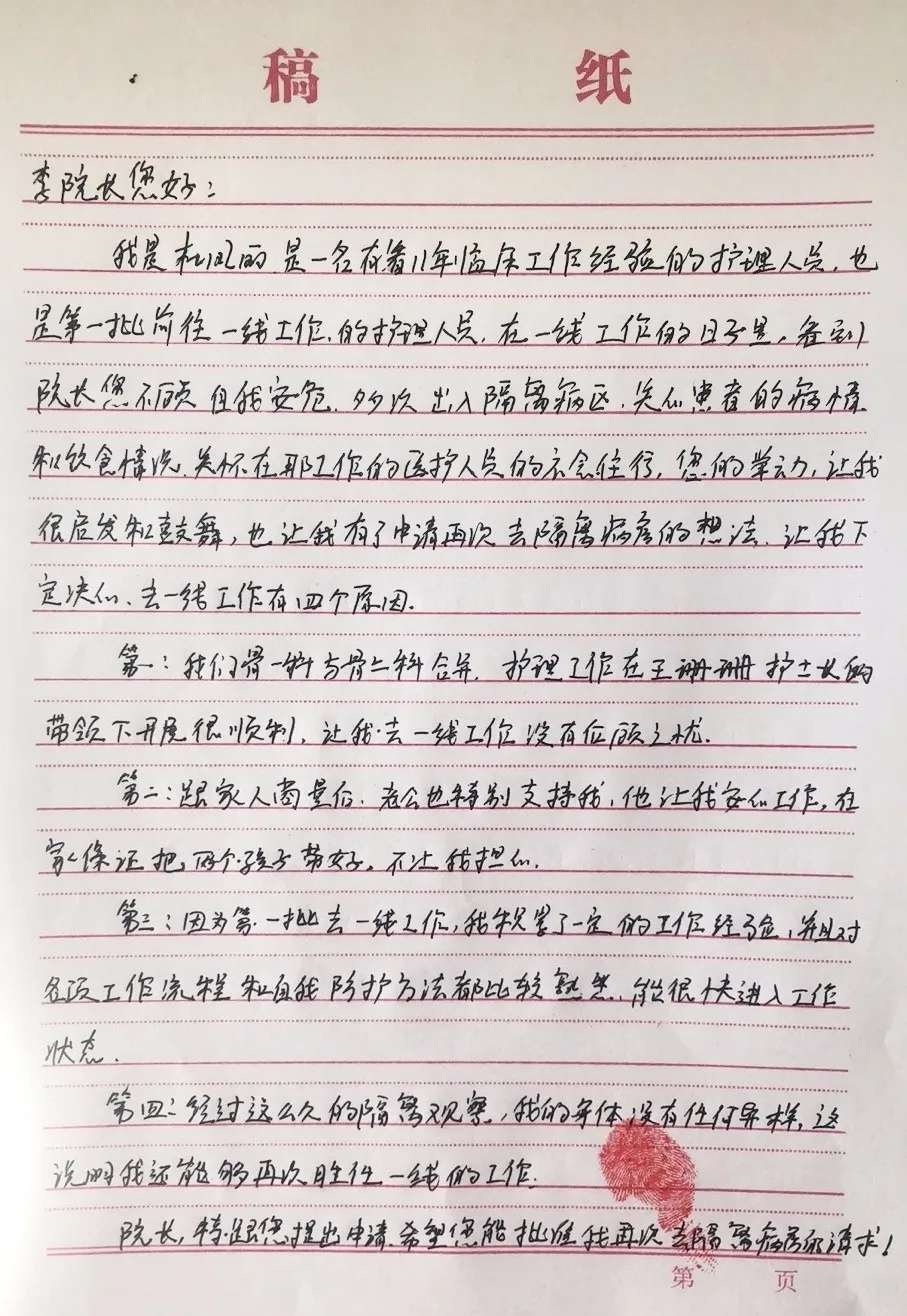 稿 纸
李院长您好：
我是杜凤丽，是一名有着11年临床工作经验的护理人员，也
是第一批前往一线工作的护理人员，在一线工作的日子里，看到
院长您不顾自我安危，多次出入隔离病区，关心患者的病情
和饮食情况，关怀在那工作的医护人员的衣食住行，您的举动，让我
很启发和鼓舞，也让我有了申请再次去隔离病房的想法，让我下
定决心、去一线工作有四个原因.
第一：我们骨一科与骨二科合并，护理工作在王珊珊护士长的
带领下开展很顺利，让我去一线工作没有后顾之忧.
第二：跟家人商量后，老公也特别支持我，他让我安心工作，在
家保证把两个孩子带好，不让我担心.
第三：因为第一批去一线工作，我积累了一定的工作经验，并且对
各项工作流程和自我防护方法都比较熟悉，能很快进入工作
状态.
第四：经过这么久的隔离观察，我的身体没有任何异样，这
说明我还能够再次胜任一线的工作.
院长，特跟您提出申请，希望您能批准我再次去隔离病房的请求！
第 页